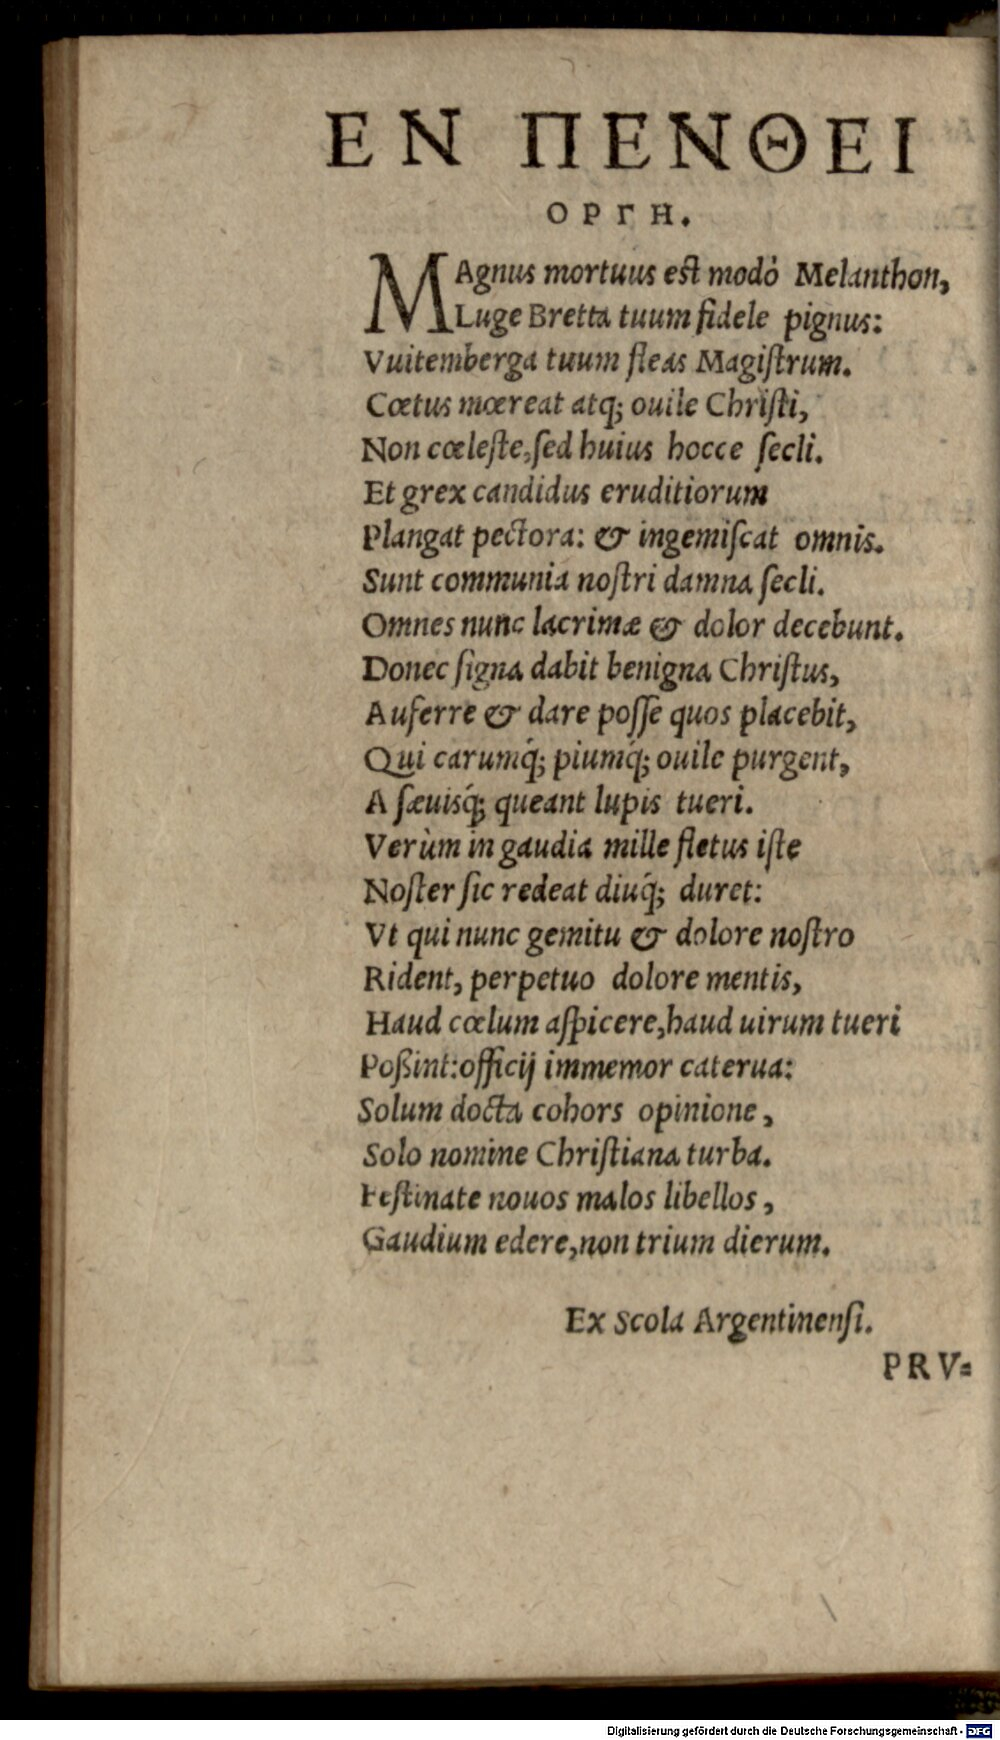 ΕΝ ΠΕΝΘΕΙ
ΟΡΓΗ.
MAgnus mortuus est modò Melanthon,
Luge Bretta tuum fidele pignus:
Vuitemberga tuum fleas Magiſtrum.
Cœtus mœreat atq; ouile Chriſti,
Non cœleſte, ſed huius hocce ſecli.
Et grex candidus eruditiorum
Plangat pectora: & ingemiſcat omnis.
Sunt communia noſtri damna ſecli.
Omnes nunc lacrimæ & dolor decebunt.
Donec ſigna dabit benigna Chriſtus,
Auferre & dare poſſe quos placebit,
Qui carumq́; piumq́; ouile purgent,
A ſæuisq́; queant lupis tueri.
Verùm in gaudia mille fletus iſte
Noſter ſic redeat diuq́; duret:
Vt qui nunc gemitu & dolore noſtro
Rident, perpetuo dolore mentis,
Haud cœlum aſpicere, haud uirum tueri
Poßint: officij immemor caterua:
Solum docta cohors opinione,
Solo nomine Chriſtiana turba.
Feſtinate nouos malos libellos,
Gaudium edere, non trium dierum.
Ex Scola Argentinenſi.
PRV=
Digitalisierung gefördert durch die Deutsche Forschungsgemeinschaft - DFG